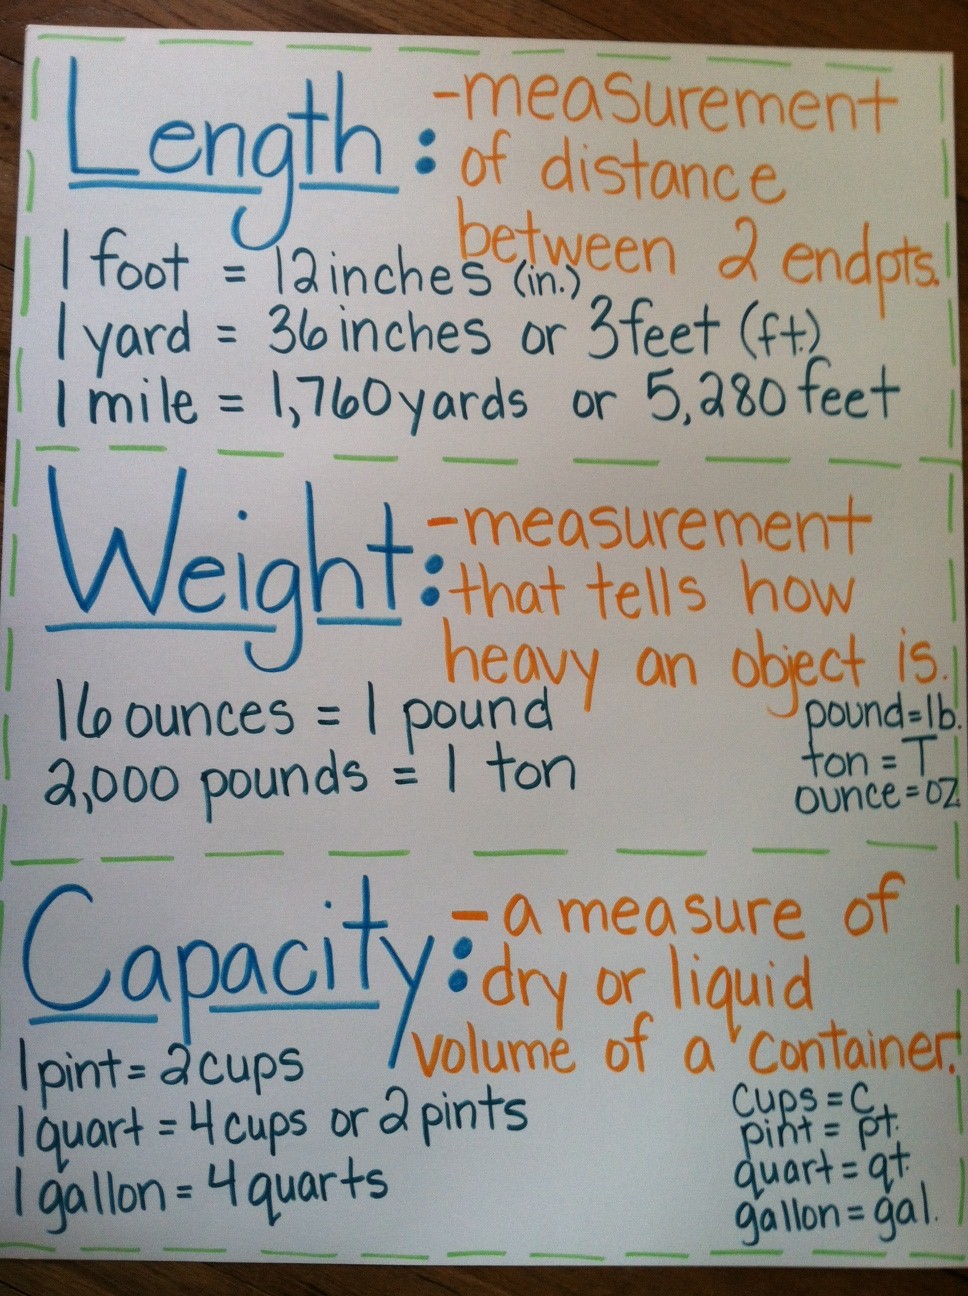 Length: -measurement
of distance
between 2 endpts.
1 foot = 12 inches (in.)
1 yard = 36 inches or 3 feet (ft.)
1 mile = 1,760 yards or 5,280 feet
Weight: -measurement
that tells how
heavy an object is.
16 ounces = 1 pound
2,000 pounds = 1 ton
pound = lb.
ton = T
ounce = oz
Capacity: -a measure of
dry or liquid
volume of a container.
1 pint = 2 cups
1 quart = 4 cups or 2 pints
1 gallon = 4 quarts
cups = c
pint = pt.
quart = qt.
gallon = gal.